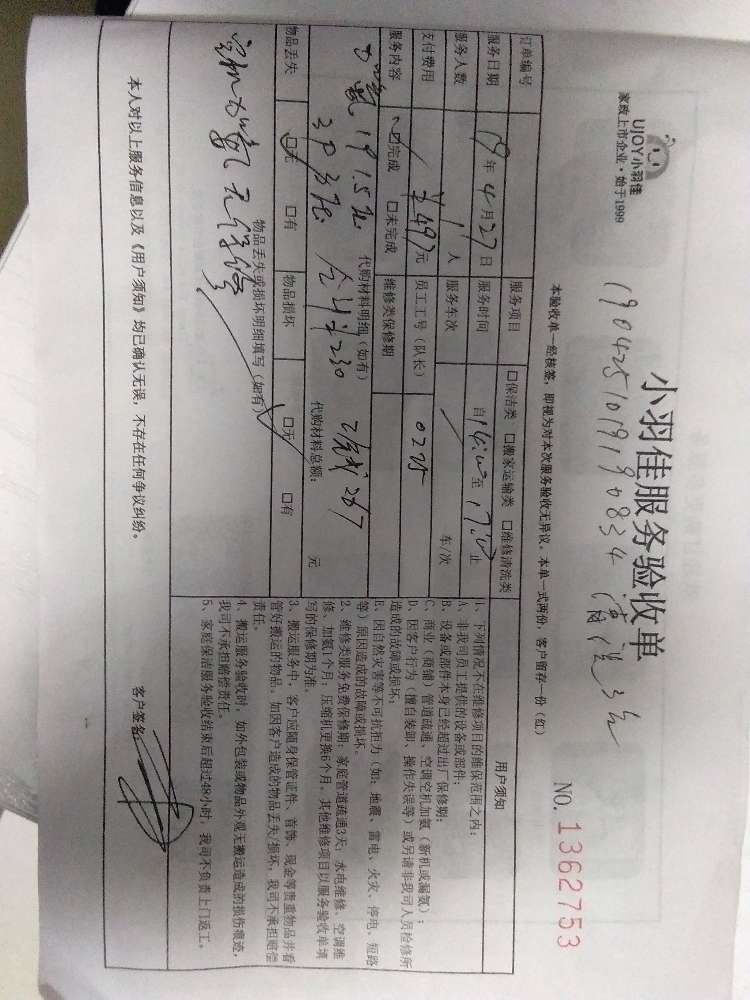 UJOY小羽佳
家政上市企业·始于1999
小羽佳服务验收单
NO. 1362753
1904251019190834 清洗3台
本验收单一经核签，即视为对本次服务验收无异议。本单一式两份，客户留存一份（红）
订单编号
服务项目 □保洁类 □搬家运输类 □维修清洗类
服务日期 19年4月27日 服务时间 自14:00至17:00止
服务人数 1人 服务车次 车/次
支付费用 ¥497元 员工工号（队长） 0225
服务内容 ☑完成 □未完成 维修类保修期
代购材料明细（如有） 代购材料总额： 元
加氨 1P 1.5台
3P 3台 合计¥230 267
物品丢失 ☑无 □有 物品损坏 ☑无 □有
物品丢失或损坏明细填写（如有）
空机加氨无保修
用户须知
1、下列情况不在维修项目的维保范围之内：
A、非我司员工提供的设备或部件；
B、设备或部件本身已经超过出厂保修期；
C、商业（商铺）管道疏通、空调空机加氨（新机或漏氨）；
D、因客户行为（擅自装卸、操作失误等）或另请非我司人员检修所
造成的故障或损坏；
E、因自然灾害等不可抗拒力（如：地震、雷电、火灾、停电、短路
等）原因造成的故障或损坏。
2、维修类服务免费保修期：家庭管道疏通3天；水电维修、空调维
修、加氨1个月；压缩机更换6个月，其他维修项目以服务验收单填
写的保修期为准。
3、搬运服务中，客户应随身保管证件、首饰、现金等贵重物品并看
管好搬运的物品。如因客户造成的物品丢失/损坏，我司不承担赔偿
责任。
4、搬运服务验收时，如外包装或物品外观无搬运造成的损伤痕迹，
我司不承担赔偿责任。
5、家庭保洁服务验收结束后超过48小时，我司不负责上门返工。
本人对以上服务信息以及《用户须知》均已确认无误，不存在任何争议纠纷。
客户签名：